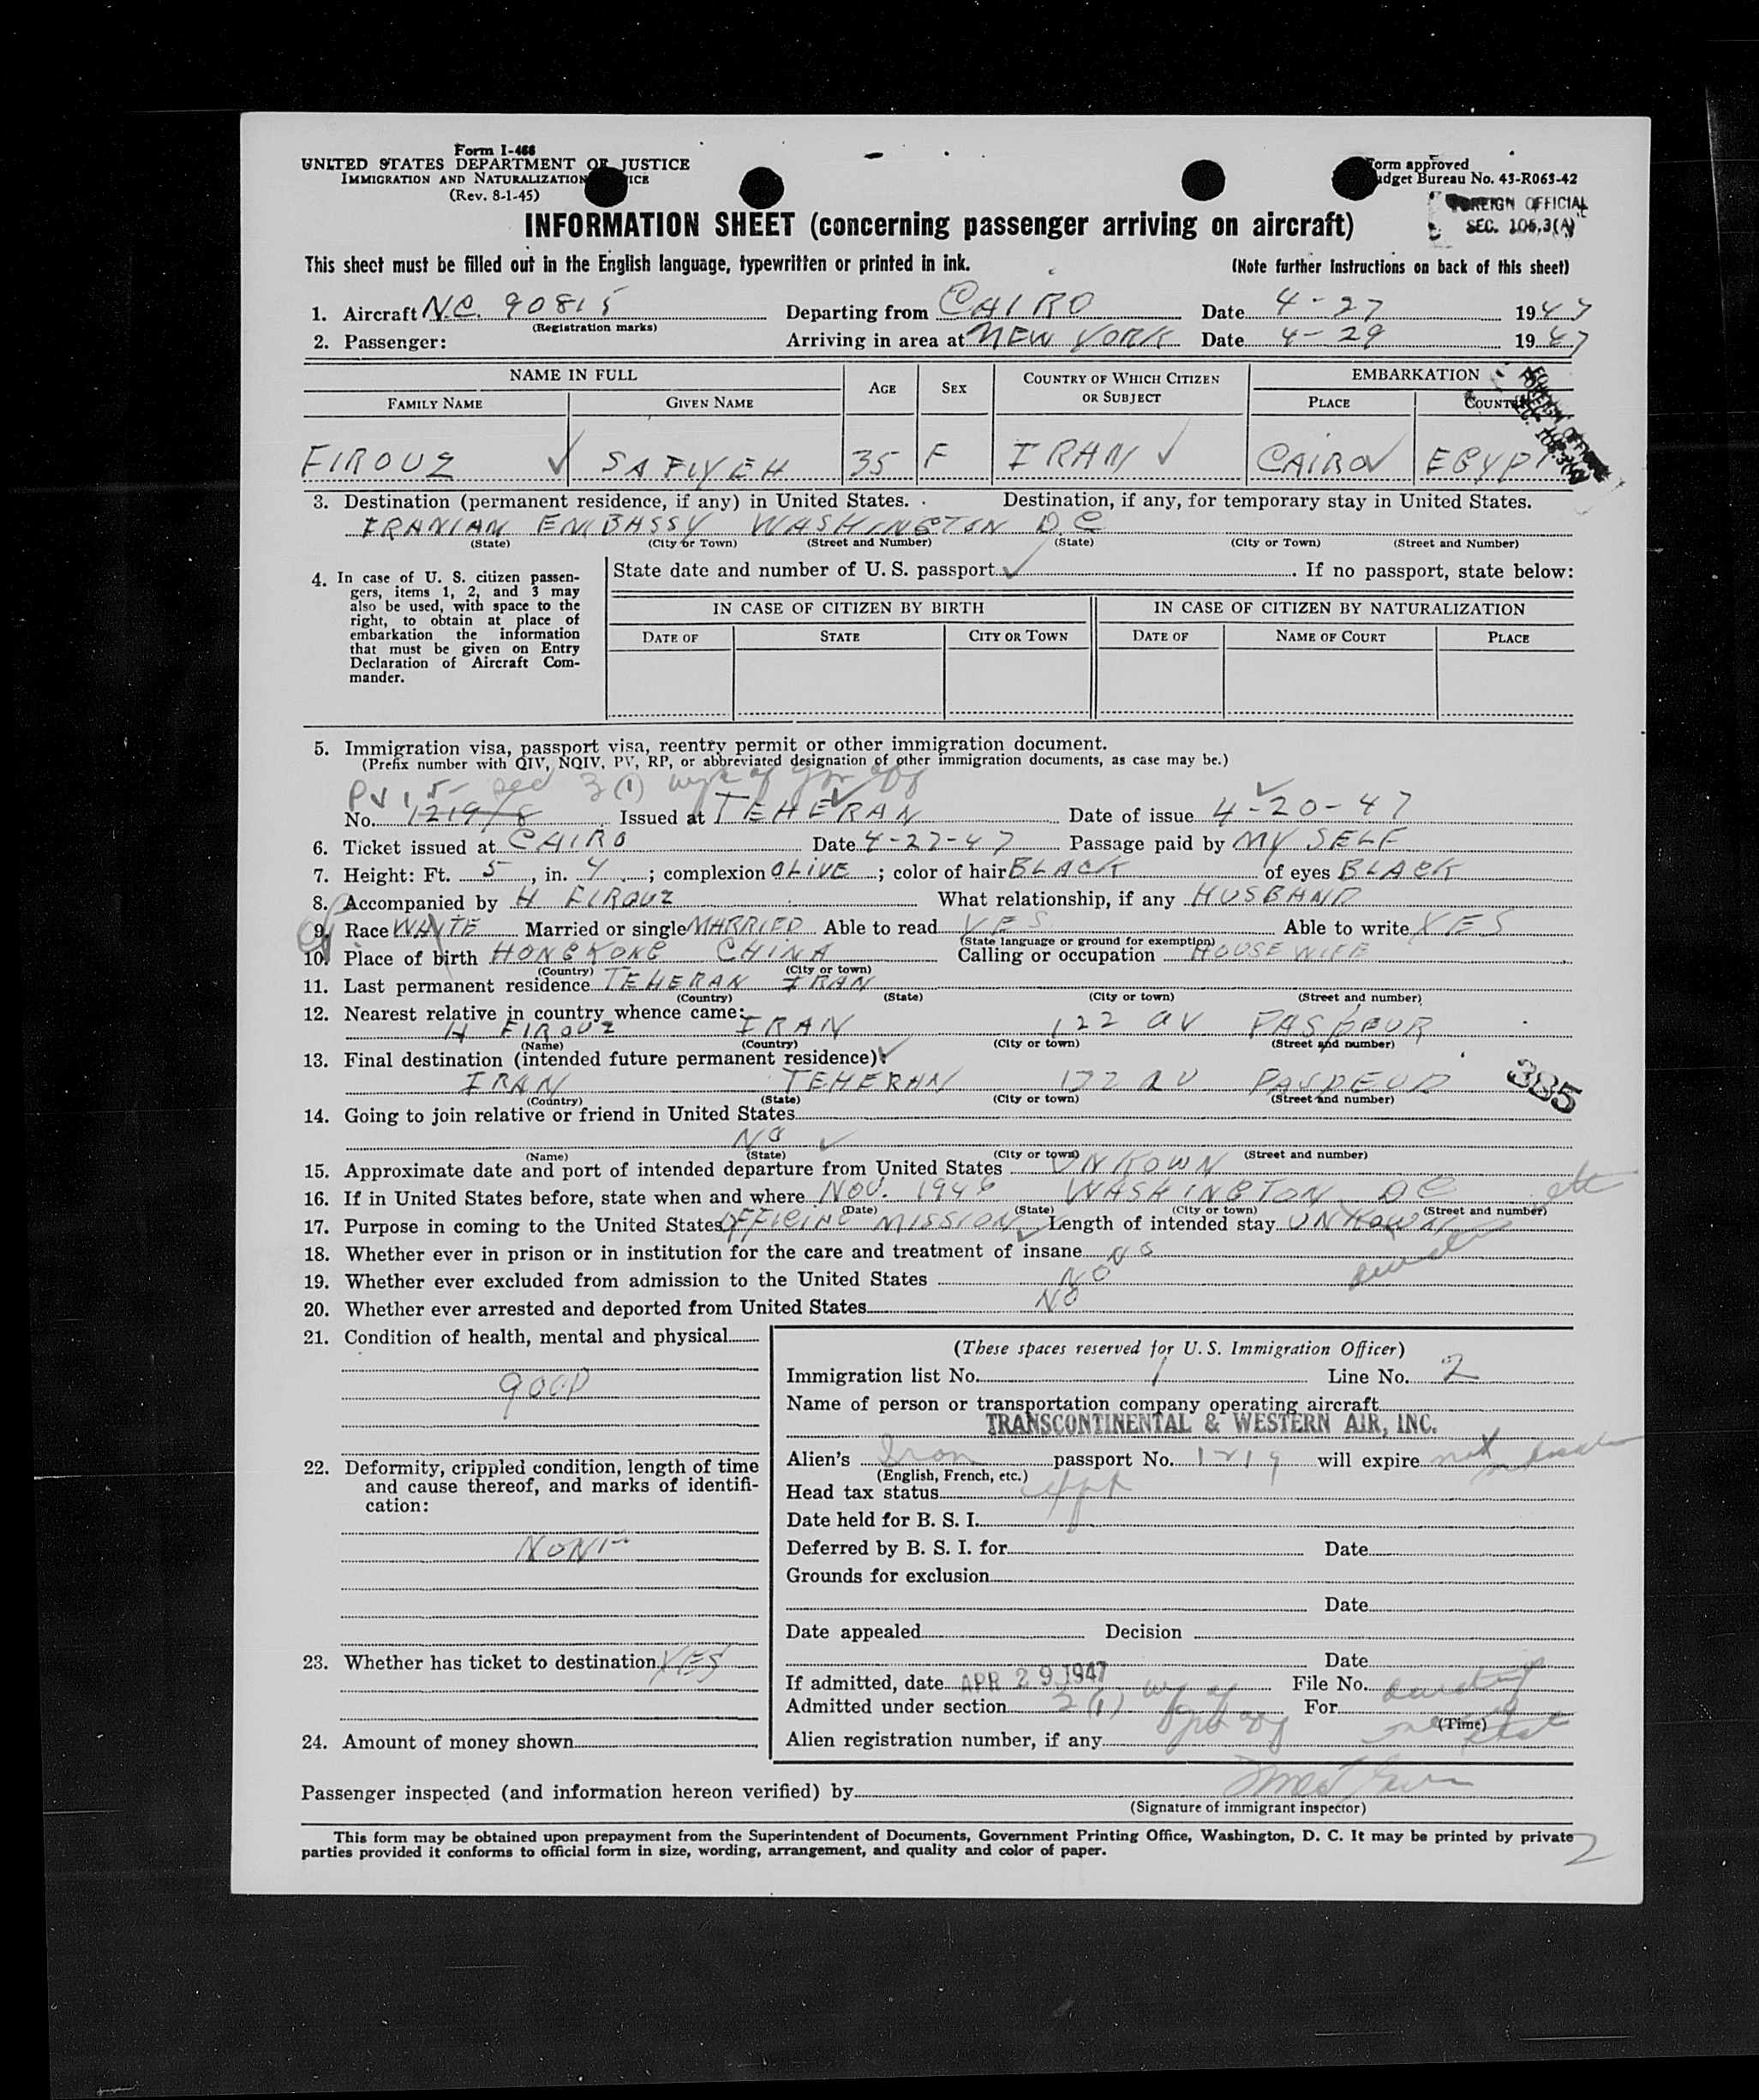 Form I-466
UNITED STATES DEPARTMENT OF JUSTICE
IMMIGRATION AND NATURALIZATION
(Rev. 8-1-45)
Form approved
Budget Bureau No. 43-R063-42
FOREIGN OFFICIAL
SEC. 106.3(A)
INFORMATION SHEET (concerning passenger arriving on aircraft)
This sheet must be filled out in the English language, typewritten or printed in ink.
(Note further instructions on back of this sheet)
1. Aircraft N.C. 90815 Departing from CAIRO Date 4-27 1947
(Registration marks)
2. Passenger: Arriving in area at NEW YORK Date 4-29 1947
NAME IN FULL AGE SEX COUNTRY OF WHICH CITIZEN OR SUBJECT EMBARKATION
FAMILY NAME GIVEN NAME PLACE COUNTRY
FIROUZ ✓ SAFIYEH 35 F IRAN ✓ CAIRO ✓ EGYPT
3. Destination (permanent residence, if any) in United States. Destination, if any, for temporary stay in United States.
IRANIAN EMBASSY WASHINGTON D.C
(State) (City or Town) (Street and Number) (State) (City or Town) (Street and Number)
4. In case of U. S. citizen passengers, items 1, 2, and 3 may also be used, with space to the right, to obtain at place of embarkation the information that must be given on Entry Declaration of Aircraft Commander.
State date and number of U. S. passport ✓ . If no passport, state below:
IN CASE OF CITIZEN BY BIRTH IN CASE OF CITIZEN BY NATURALIZATION
DATE OF STATE CITY OR TOWN DATE OF NAME OF COURT PLACE
5. Immigration visa, passport visa, reentry permit or other immigration document.
(Prefix number with QIV, NQIV, PV, RP, or abbreviated designation of other immigration documents, as case may be.)
PV 15 sec 3(1)
No. 1219/8 Issued at TEHERAN Date of issue 4-20-47
6. Ticket issued at CAIRO Date 4-27-47 Passage paid by MY SELF
7. Height: Ft. 5, in. 4; complexion OLIVE; color of hair BLACK of eyes BLACK
8. Accompanied by H FIROUZ What relationship, if any HUSBAND
9. Race WHITE Married or single MARRIED Able to read YES Able to write YES
(State language or ground for exemption)
10. Place of birth HONGKONG CHINA Calling or occupation HOUSE WIFE
(Country) (City or town)
11. Last permanent residence TEHERAN IRAN
(Country) (State) (City or town) (Street and number)
12. Nearest relative in country whence came:
H FIROUZ IRAN 122 av PASPEUR
(Name) (Country) (City or town) (Street and number)
13. Final destination (intended future permanent residence):
IRAN TEHERAN 122 av
385
(Country) (State) (City or town) (Street and number)
14. Going to join relative or friend in United States
NO ✓
(Name) (State) (City or town) (Street and number)
15. Approximate date and port of intended departure from United States UNKOWN
16. If in United States before, state when and where NOV. 1946 WASHINGTON DC
(Date) (State) (City or town) (Street and number)
17. Purpose in coming to the United States MISSION Length of intended stay UNKOWN
18. Whether ever in prison or in institution for the care and treatment of insane NO
19. Whether ever excluded from admission to the United States NO
20. Whether ever arrested and deported from United States NO
21. Condition of health, mental and physical
GOOD
22. Deformity, crippled condition, length of time and cause thereof, and marks of identification:
NONE
23. Whether has ticket to destination YES
24. Amount of money shown
(These spaces reserved for U. S. Immigration Officer)
Immigration list No. 1 Line No. 2
Name of person or transportation company operating aircraft
TRANSCONTINENTAL & WESTERN AIR, INC.
Alien's Iran passport No. 1219 will expire
(English, French, etc.)
Head tax status
Date held for B. S. I.
Deferred by B. S. I. for Date
Grounds for exclusion
Date
Date appealed Decision
Date
If admitted, date APR 29 1947 File No.
Admitted under section 3(1) For
(Time)
Alien registration number, if any
Passenger inspected (and information hereon verified) by
(Signature of immigrant inspector)
This form may be obtained upon prepayment from the Superintendent of Documents, Government Printing Office, Washington, D. C. It may be printed by private
parties provided it conforms to official form in size, wording, arrangement, and quality and color of paper.
2